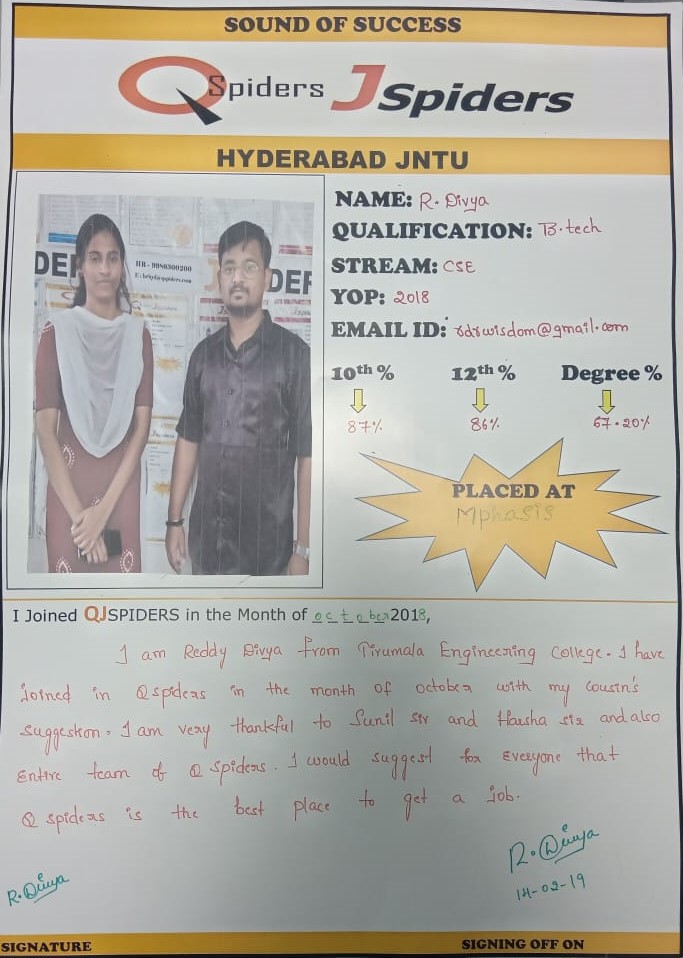 SOUND OF SUCCESS
QSpiders JSpiders
HYDERABAD JNTU
DE
HR - 9980300200
DER
NAME: R. Divya
QUALIFICATION: B.tech
STREAM: CSE
YOP: 2018
EMAIL ID: rdrwisdom@gmail.com
10th % 12th % Degree %
87% 86% 67.20%
PLACED AT
Mphasis
I Joined QJSPIDERS in the Month of october 2018,
I am Reddy Divya from Tirumala Engineering College. I have
joined in Qspiders in the month of october with my cousin's
suggestion. I am very thankful to Sunil sir and Harsha sir and also
Entire team of Q Spiders. I would suggest for Everyone that
Q spiders is the best place to get a job.
R. Divya
R. Divya
14-02-19
SIGNATURE SIGNING OFF ON